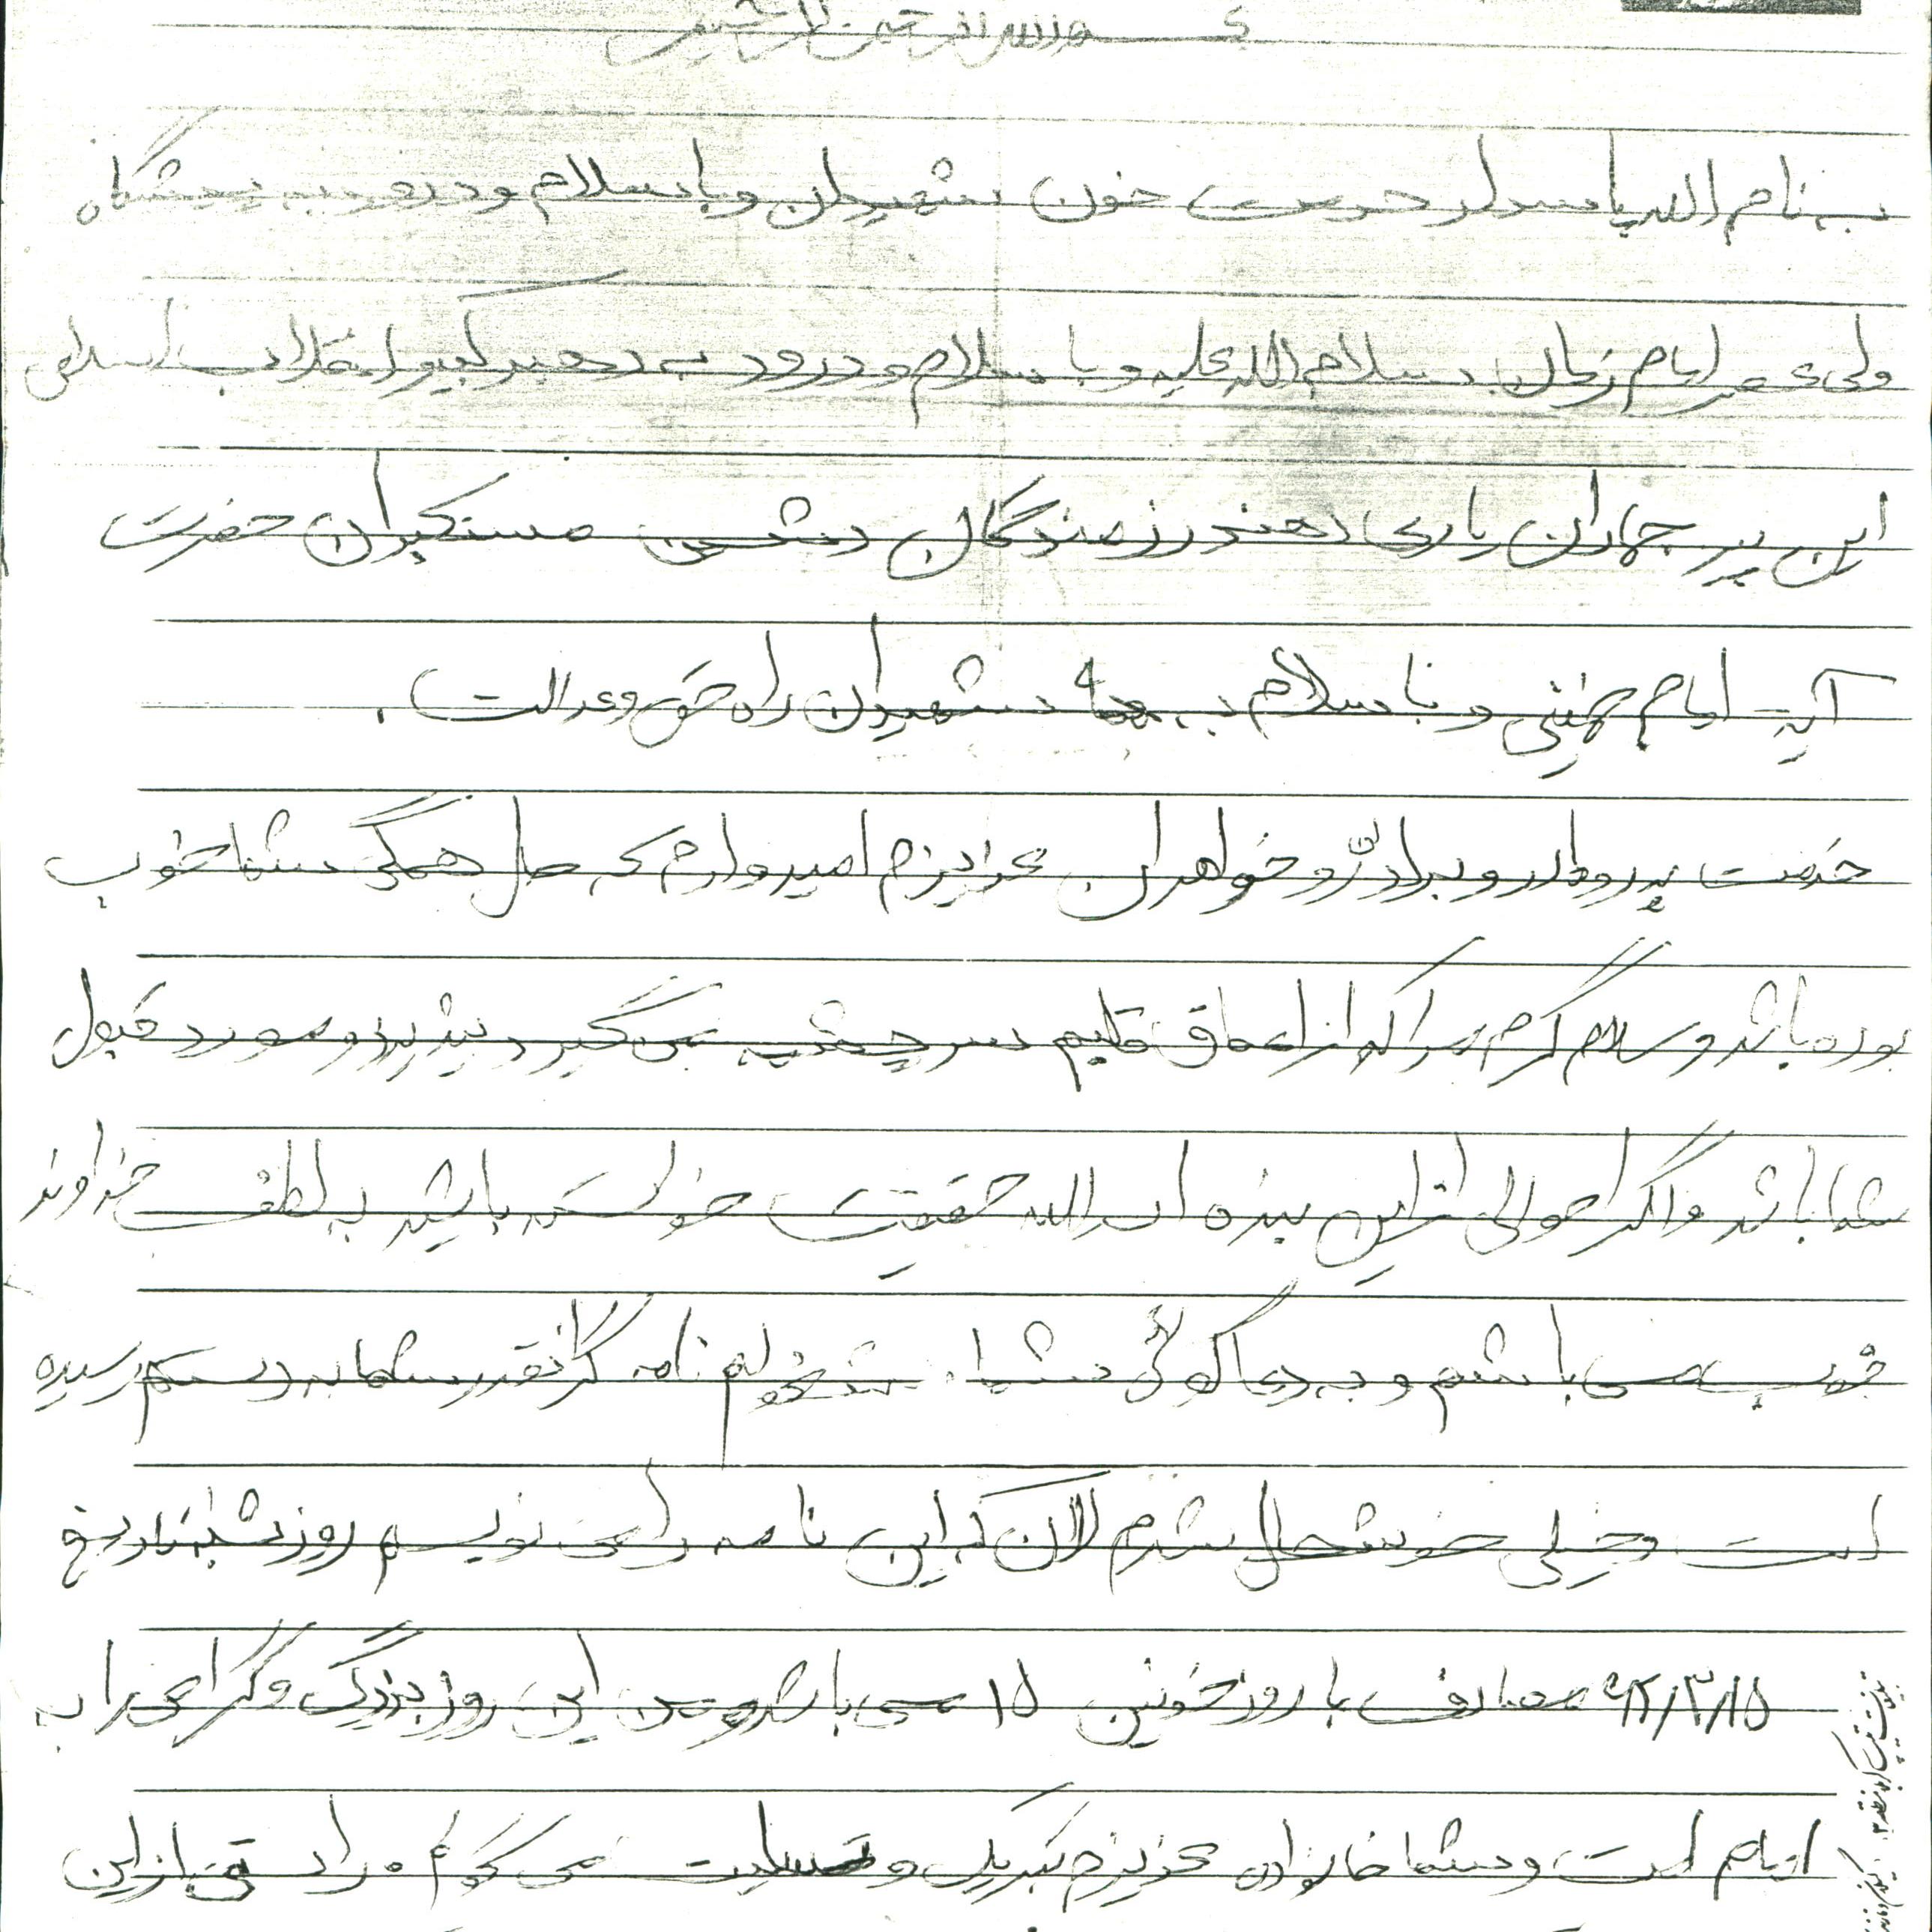 بسم الله الرحمن الرحیم
به نام الله پاسدار حرمت خون شهیدان و با سلام و درود به پیشگاه
ولی عصر امام زمان سلام الله علیه و با سلام و درود به رهبر کبیر انقلاب اسلامی
این پیر جماران یاری دهنده رزمندگان دشمن مستکبران حضرت
آیت امام خمینی و با سلام به همه شهیدان راه حق و عدالت.
خدمت پدر و مادر و برادران و خواهران عزیزم امیدوارم که حال همگی شما خوب
بوده باشد و سلام گرم مرا که از اعماق قلبم سرچشمه می گیرد بپذیرد و مورد قبول
شما باشد و اگر احوالی از این بنده الله حقیقت خواسته باشید به لطف خداوند
خوب می باشم و به دعا گوئی شما مشغولم نامه گرانقدر شما به دستم رسیده
است و خیلی خوشحال شدم الان که این نامه را می نویسم روز شنبه تاریخ
۶۲/۳/۱۵ مصادف با روز خونین ۱۵ می باشد و من این روز بزرگ و گرامی را به
امام امت و شما خانواده عزیزم تبریک و تسلیت می گویم